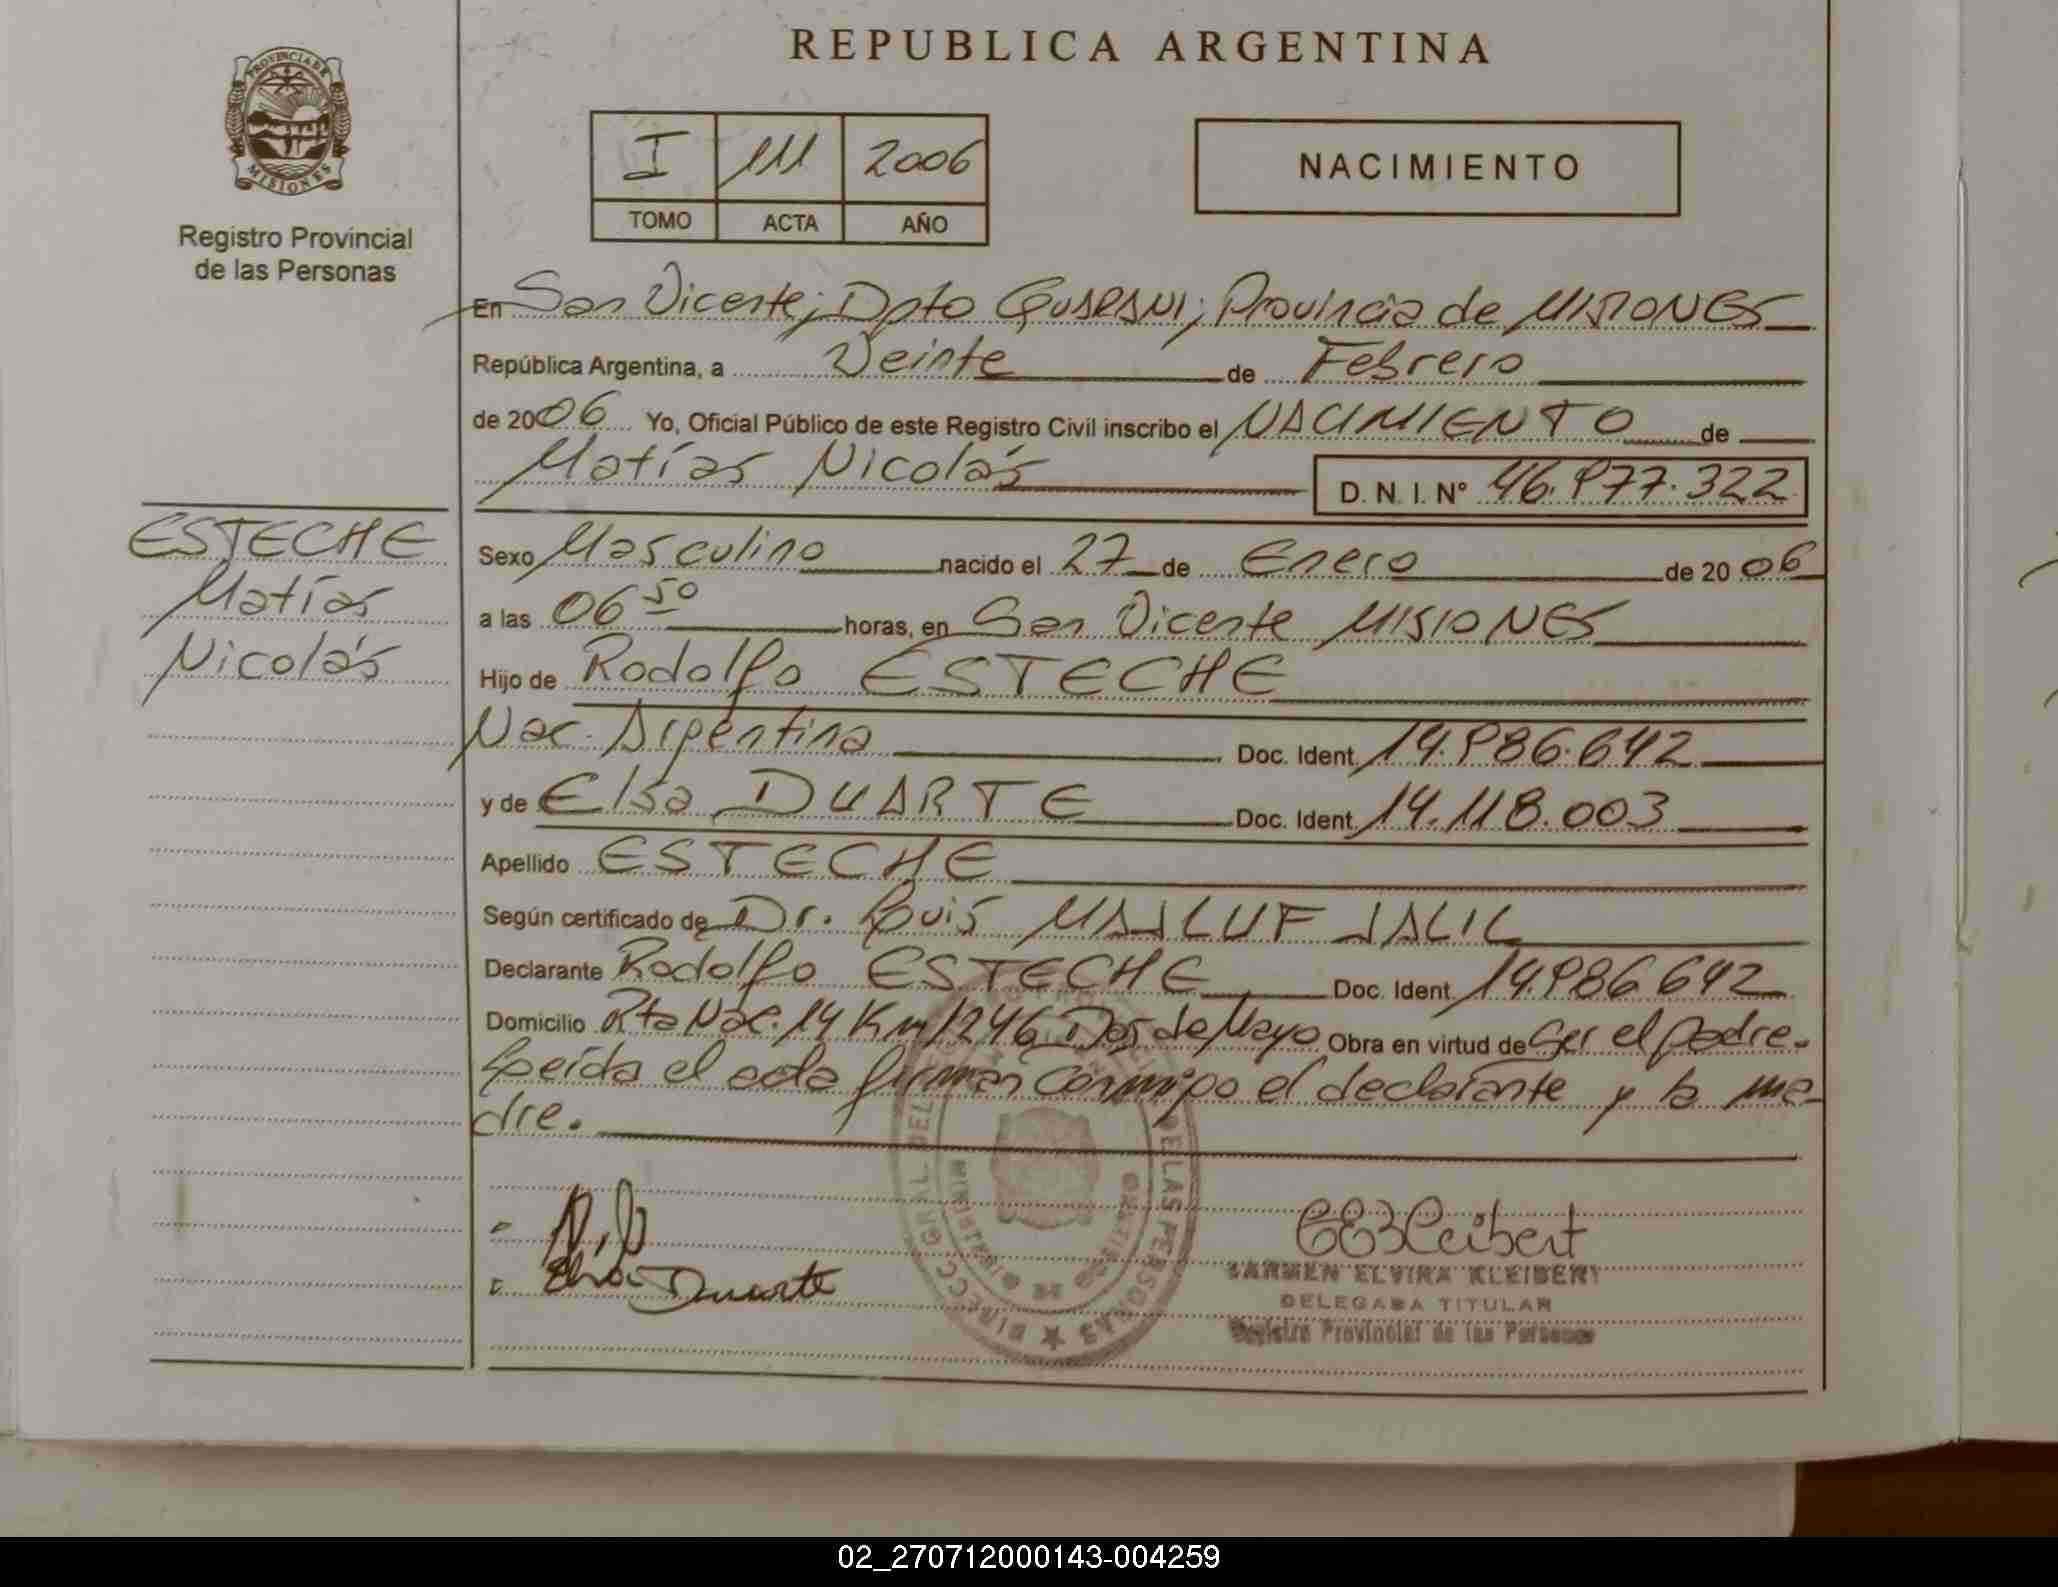 REPUBLICA ARGENTINA
PROVINCIA DE
MISIONES
Registro Provincial
de las Personas
I 111 2006
TOMO ACTA AÑO
NACIMIENTO
En San Vicente; Dpto GUARANI; Provincia de MISIONES
República Argentina, a Veinte de Febrero
de 2006 Yo, Oficial Público de este Registro Civil inscribo el NACIMIENTO de
Matías Nicolás D.N.I. Nº 46.977.322
ESTECHE
Matías
Nicolás
Sexo Masculino nacido el 27 de Enero de 2006
a las 06 50 horas, en San Vicente MISIONES
Hijo de Rodolfo ESTECHE
Nac. Argentina Doc. Ident. 14.986.642
y de Elsa DUARTE Doc. Ident. 14.118.003
Apellido ESTECHE
Según certificado de Dr. Luis MAJLUF JALIL
Declarante Rodolfo ESTECHE Doc. Ident. 14.986.642
Domicilio Rta Nac. 14 Km 1246 Dos de Mayo Obra en virtud de Ser el padre.
Leída el acta firman conmigo el declarante y la ma-
dre.
Elsa Duarte
CARMEN ELVIRA KLEIBERT
DELEGADA TITULAR
Registro Provincial de las Personas
02_270712000143-004259